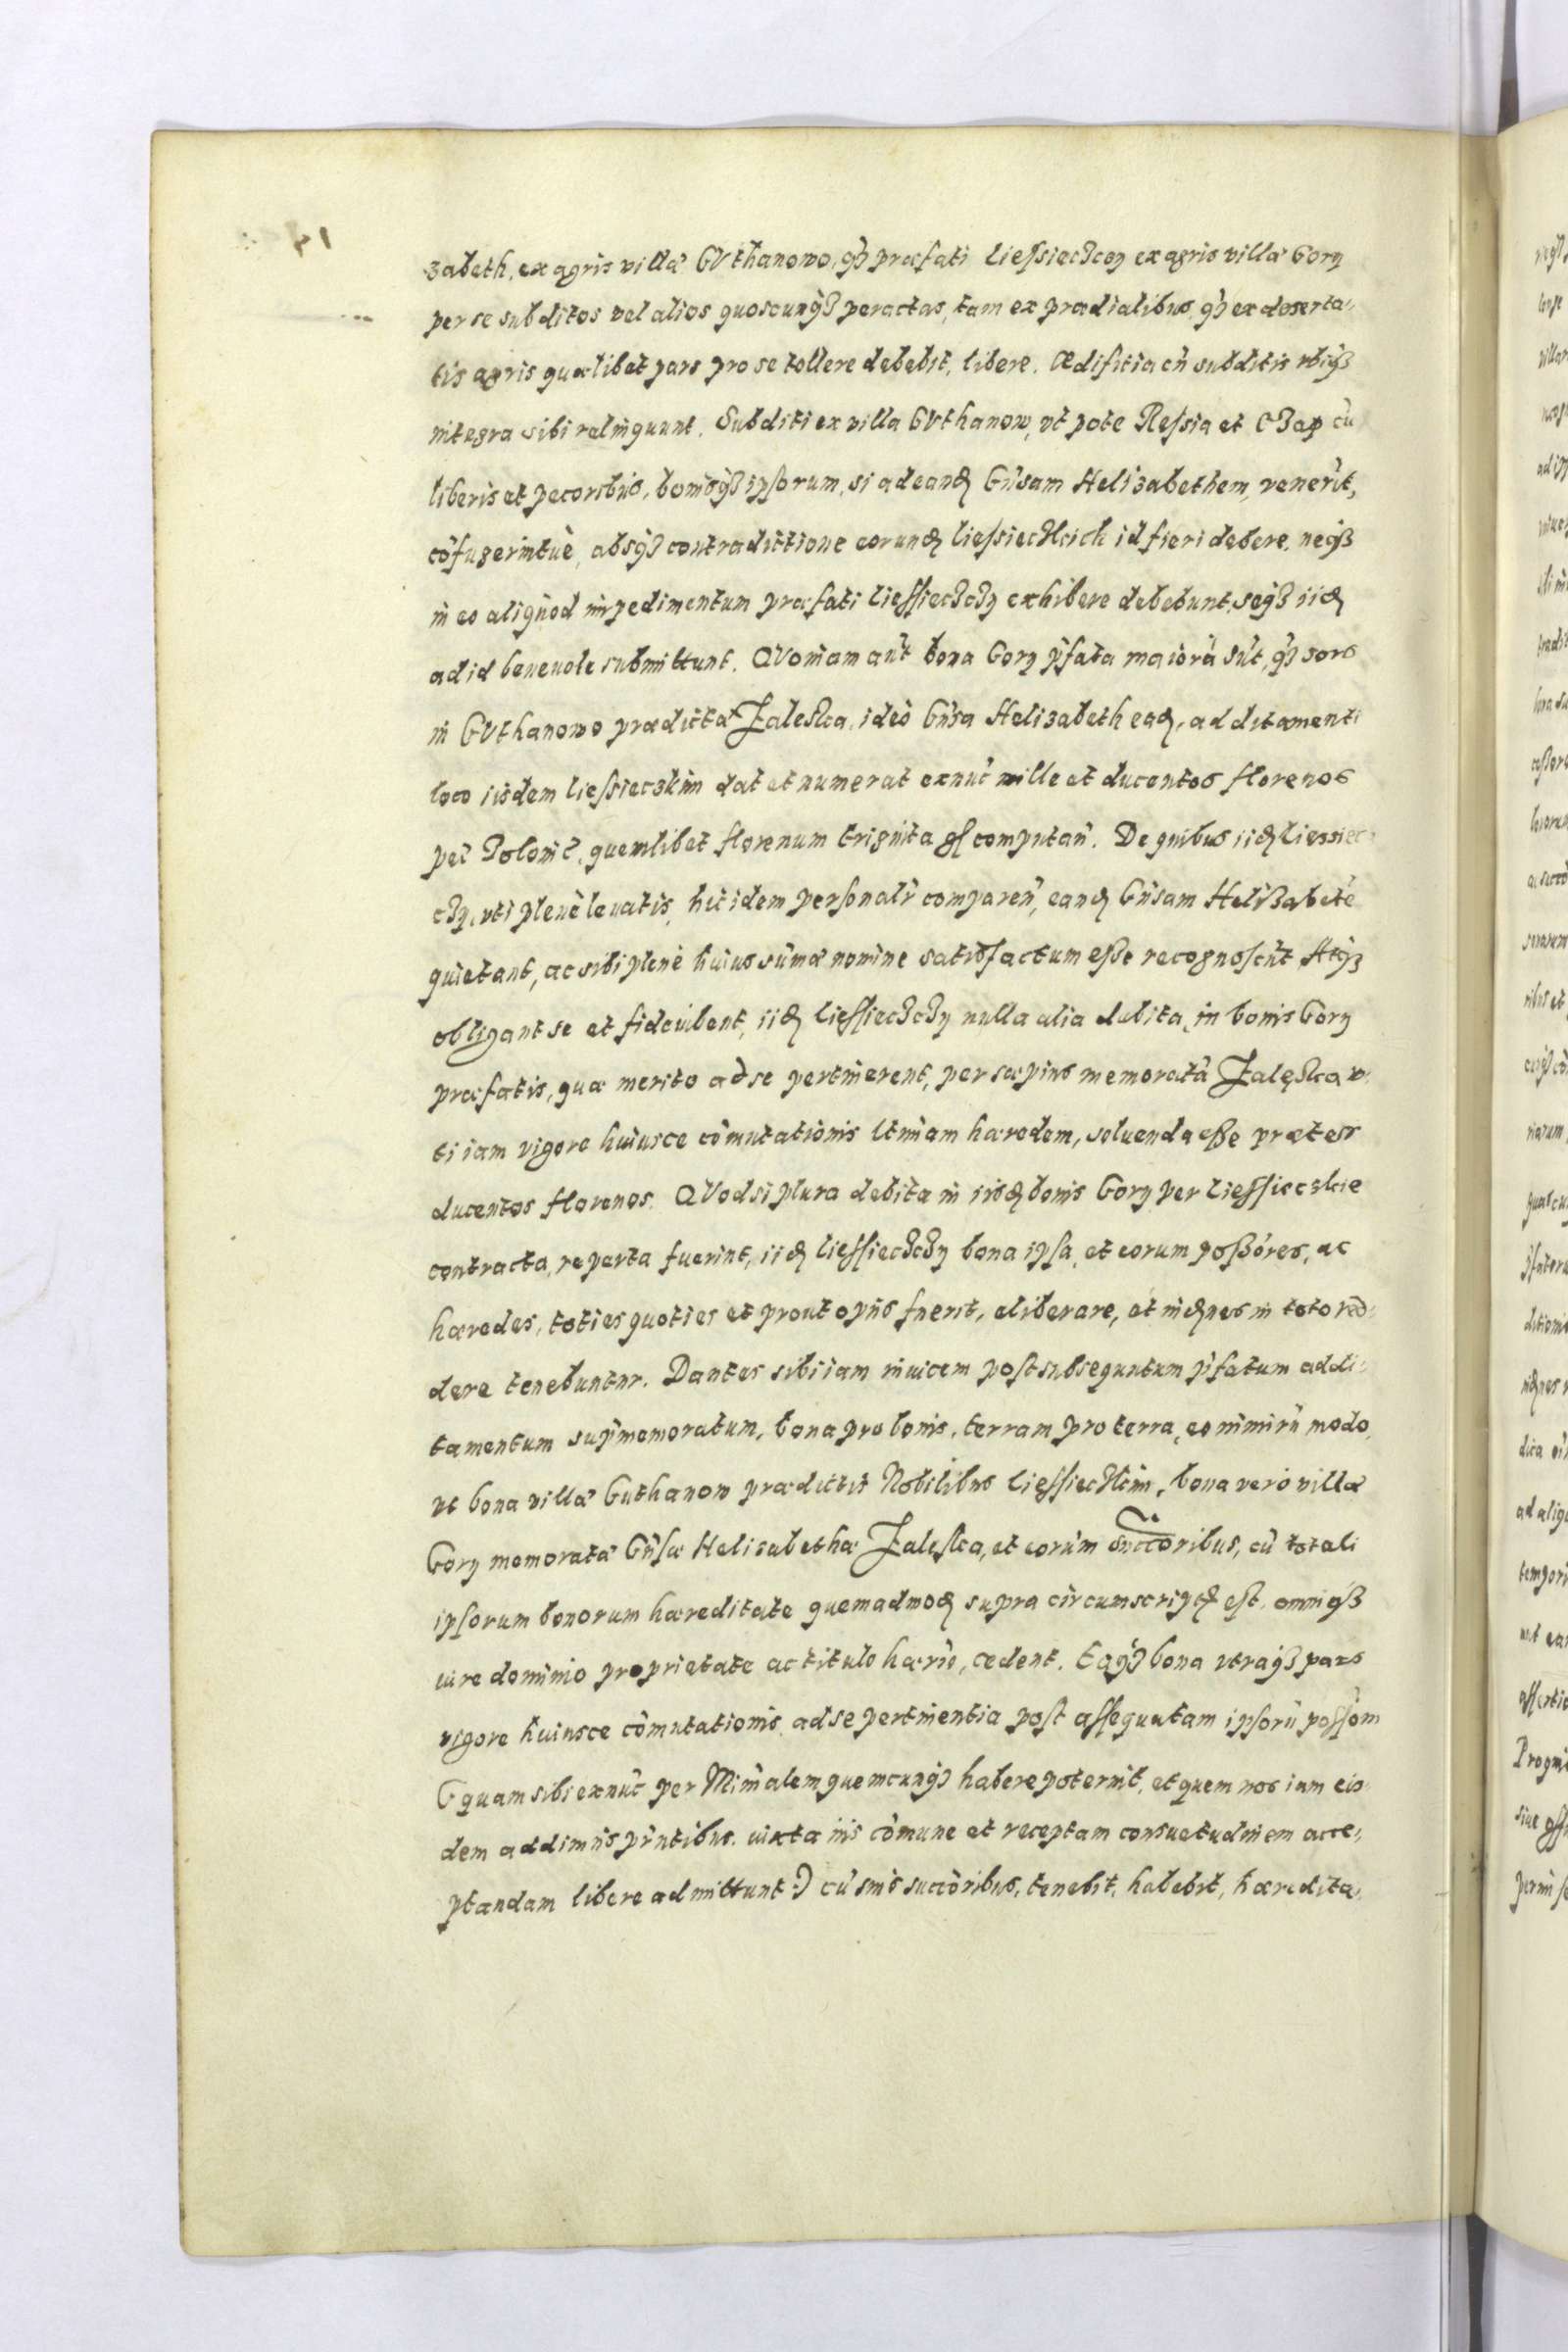 zabeth, ex agris villæ GVthanowo, qȝ præfati Liessieczcy ex agris villæ Gory
per se subditos vel alios quoscunqȝ peractas, tam ex prædialibus, qȝ ex deserta-
tis agris quælibet pars pro se tollere debebit, libere. Ædifitia cū subditis vbiqȝ
integra sibi relinquunt. Subditi ex villa GVthanow, vt pote Ressia et Czap cū
liberis et pecoribus, bonisqȝ ipsorum, si ad eandē Gn̄sam Helizabethem, venerīt,
cōfugerintuè, absqȝ contradictione eorundē Liessieczkich id fieri debere, neqȝ
in eo aliquod impedimentum præfati Liessieczczy exhibere debebunt, seqȝ iidē
ad id beneuole submittunt. QVoniam aūt bona Gory p̄fata maiora sūt, qȝ sors
in GVthanowo prædictæ Zaleska, ideò Gn̄sa Helizabeth eadē, additamenti
loco iisdem Liessieczkim dat et numerat exnūc mille et ducentos florenos
pec̄ Polonic̄, quemlibet florenum triginta gl computañ. De quibus iidē Liessiec
czy, vti plenè leuatis, hic idem personalr̄ compareñ, eandē Gn̄sam Helizabetē
quietant, ac sibi plenè huius sūmæ nomine satisfactum esse recognoscūt Atqȝ
obligant se et fideiubent, iidē Liessieczczy nulla alia debita, in bonis Gory
præfatis, quæ merito ad se pertinerent, per sæpius memoratā Zaleska v-
ti iam vigore huiusce cōmutationis ltimam hæredem, soluenda esse præter
ducentos florenos. QVodsi plura debita in iisdē bonis Gory per Liessieczkie
contracta, reperta fuerint, iidē Liessieczczy bona ipsa, et eorum possōres, ac
hæredes, toties quoties et prout opus fuerit, eliberare, et indēnes in toto red-
dere tenebuntur. Dantes sibi iam inuicem post subsequutum p̄fatum addi-
tamentum sup̄memoratum, bona pro bonis, terram pro terra, eo nimirū modo,
vt bona villæ Guthanow prædictis Nobilibus Liessieczkim, bona verò villæ
Gory memoratæ Gn̄sæ Helizabethæ Zaleska, et eorum succōribus, cū totali
ipsorum bonorum hæreditate quemadmodē supra circumscriptē est, omniqȝ
iure dominio proprietate ac titulo hærio, cedent. Eaqȝ bona vtraqȝ pars
vigore huiusce cōmutationis, ad se pertinentia post assequutam ipsorū possōm
(quam sibi exnūc per Min̄alem quemcunqȝ habere poterint, et quem nos iam eis-
dem addimus pn̄tibus, iuxta ius cōmune et receptam consuetudinem acce-
ptandam libere admittunt:) cū suis succōribus, tenebit, habebit, hæredita-